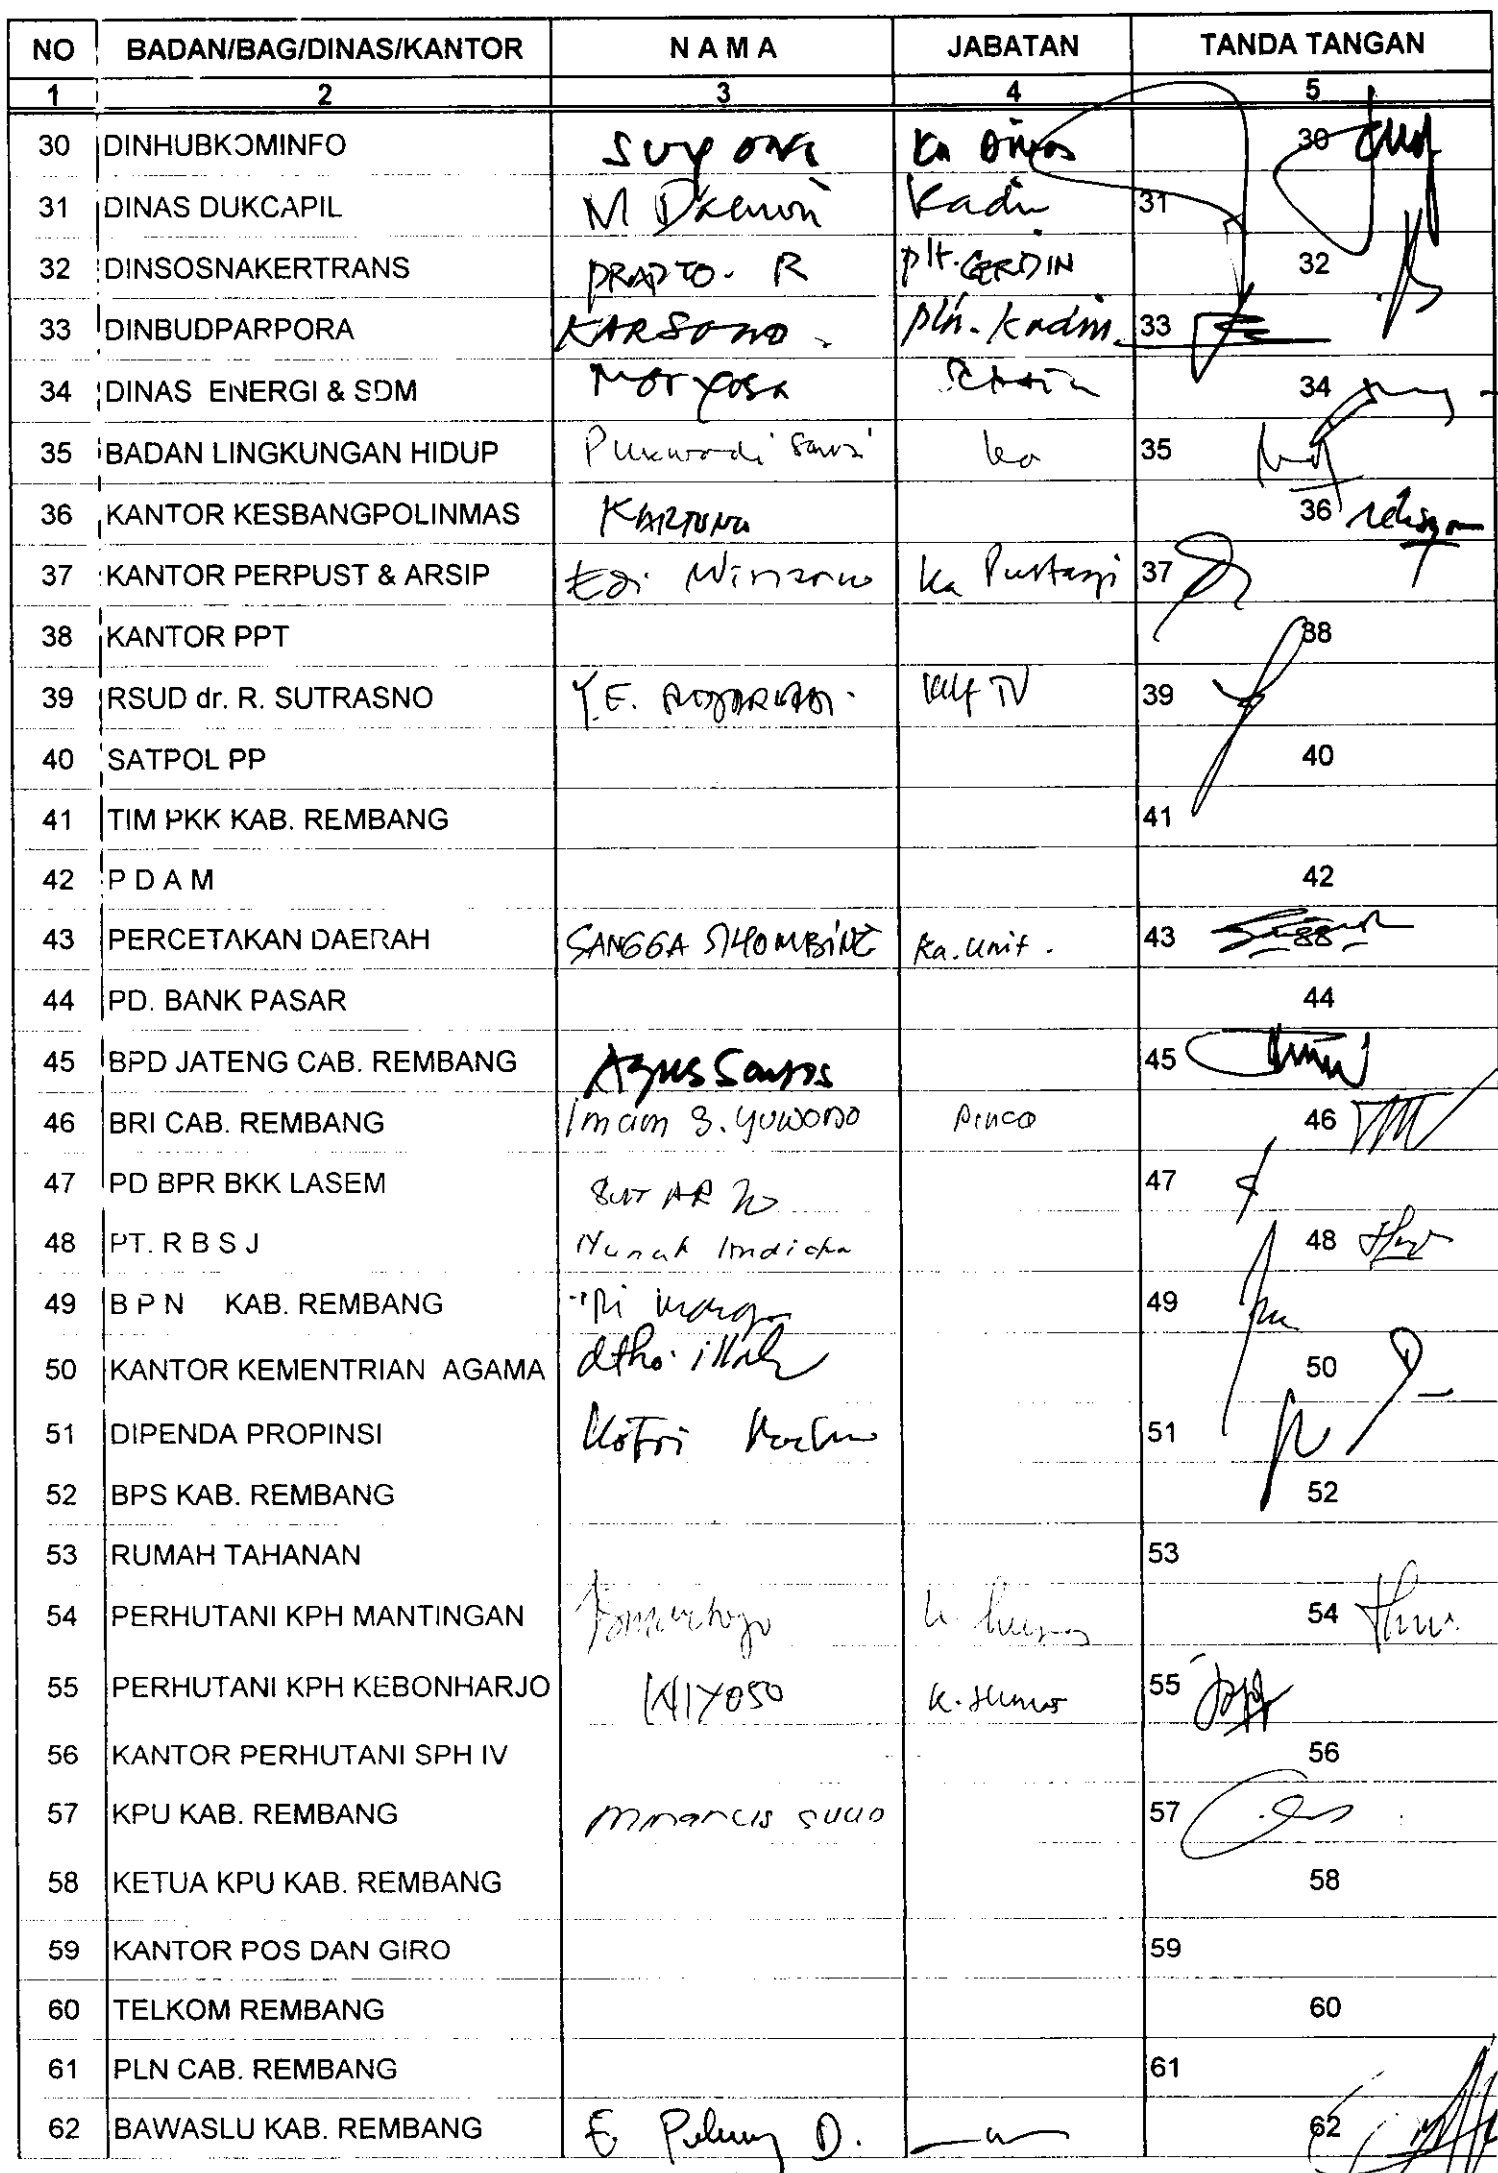 NO BADAN/BAG/DINAS/KANTOR N A M A JABATAN TANDA TANGAN
1 2 3 4 5
30 DINHUBKOMINFO Suyono Ka Dinas 30
31 DINAS DUKCAPIL M Kadin 31
32 DINSOSNAKERTRANS PRAPTO. R plt. 32
33 DINBUDPARPORA KARSONO. plh. Kadin. 33
34 DINAS ENERGI & SDM 34
35 BADAN LINGKUNGAN HIDUP Ka 35
36 KANTOR KESBANGPOLINMAS KARTONO 36
37 KANTOR PERPUST & ARSIP Edi Winarno Ka 37
38 KANTOR PPT 38
39 RSUD dr. R. SUTRASNO Y.E. 39
40 SATPOL PP 40
41 TIM PKK KAB. REMBANG 41
42 P D A M 42
43 PERCETAKAN DAERAH SANGGA SIHOMBING Ka. Unit. 43
44 PD. BANK PASAR 44
45 BPD JATENG CAB. REMBANG Agus 45
46 BRI CAB. REMBANG Imam S. YUWONO Pinca 46
47 PD BPR BKK LASEM 47
48 PT. R B S J 48
49 B P N KAB. REMBANG 49
50 KANTOR KEMENTRIAN AGAMA 50
51 DIPENDA PROPINSI 51
52 BPS KAB. REMBANG 52
53 RUMAH TAHANAN 53
54 PERHUTANI KPH MANTINGAN 54
55 PERHUTANI KPH KEBONHARJO K. Humas 55
56 KANTOR PERHUTANI SPH IV 56
57 KPU KAB. REMBANG 57
58 KETUA KPU KAB. REMBANG 58
59 KANTOR POS DAN GIRO 59
60 TELKOM REMBANG 60
61 PLN CAB. REMBANG 61
62 BAWASLU KAB. REMBANG D. 62